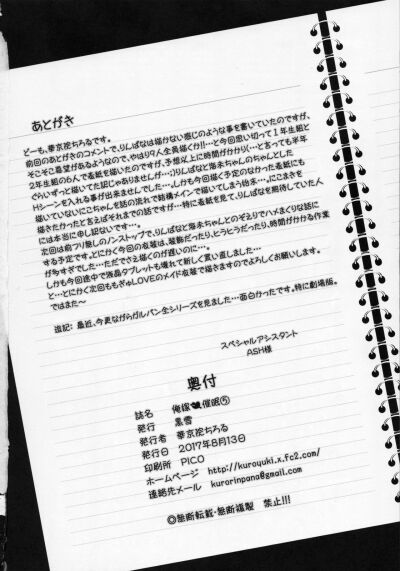 あとがき
どーも、華京院ちろるです。
前回のあとがきのコメントで、りんぱなは描かない感じのような事を書いていたのですが、
そこそこ要望があるようなので、やはり9人全員描くか!!…と今回思い切って1年生組と
2年生組の6人で表紙を描いたのですが、予想以上に時間がかかり(…と言っても半年
ぐらいずっと描いてた訳じゃありませんが…;)りんぱなと海未ちゃんのちゃんとした
Hシーンを入れる事が出来ませんでした…。しかも今回描く予定のなかった表紙にも
描いていないにこちゃんを話の流れで結構メインで描いてしまう始末…。にこまきを
描きたかったと言えばそれまでの話ですが…特に表紙を見て、りんぱなを期待していた人
には本当に申し訳ないです…。
次回は前フリ無しのノンストップで、りんぱなと海未ちゃんとのぞえりでハメまくりな話に
する予定です。とにかく今回の衣装は、装飾だったり、ヒラヒラだったり、時間がかかる作業
が多すぎでした…ただでさえ描くのが遅いのに…。
しかも今回途中で液晶タブレットも壊れて新しく買い直しました…
と…とにかく次回ももぎゅLOVEのメイド衣装で描きますのでよろしくお願いします。
ではまた～
追記：最近、今更ながらガルパン全シリーズを見ました…面白かったです。特に劇場版。
スペシャルアシスタント
ASH様
奥付
誌名 俺嫁催眠⑤
発行 黒雪
発行者 華京院ちろる
発行日 2017年8月13日
印刷所 PICO
ホームページ http://kuroyuki.x.fc2.com/
連絡先メール kurorinpana@gmail.com
◎無断転載・無断複製 禁止!!!